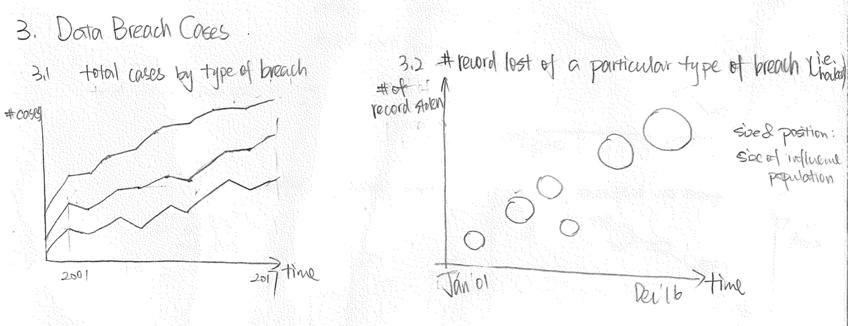 3. Data Breach Cases
3.1 total cases by type of breach
#cases
2001
2017
time
3.2 #record lost of a particular type of breach (i.e. hacked)
# of
record stolen
size & position:
size of influence
population
Jan'01
Dec'16
time